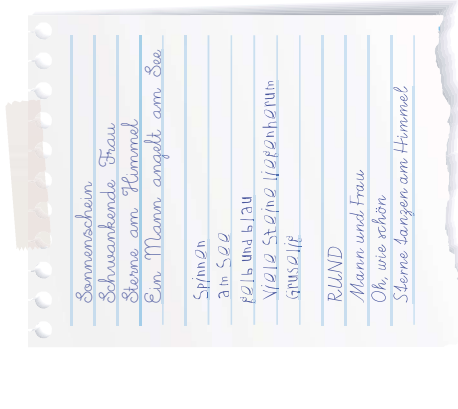 Sonnenschein
Schwankende Frau
Sterne am Himmel
Ein Mann angelt am See
Spinnen
am See
gelb und blau
Viele Steine liegenherum
Gruselig
RUND
Mann und Frau
Oh, wie schön
Sterne tanzen am Himmel